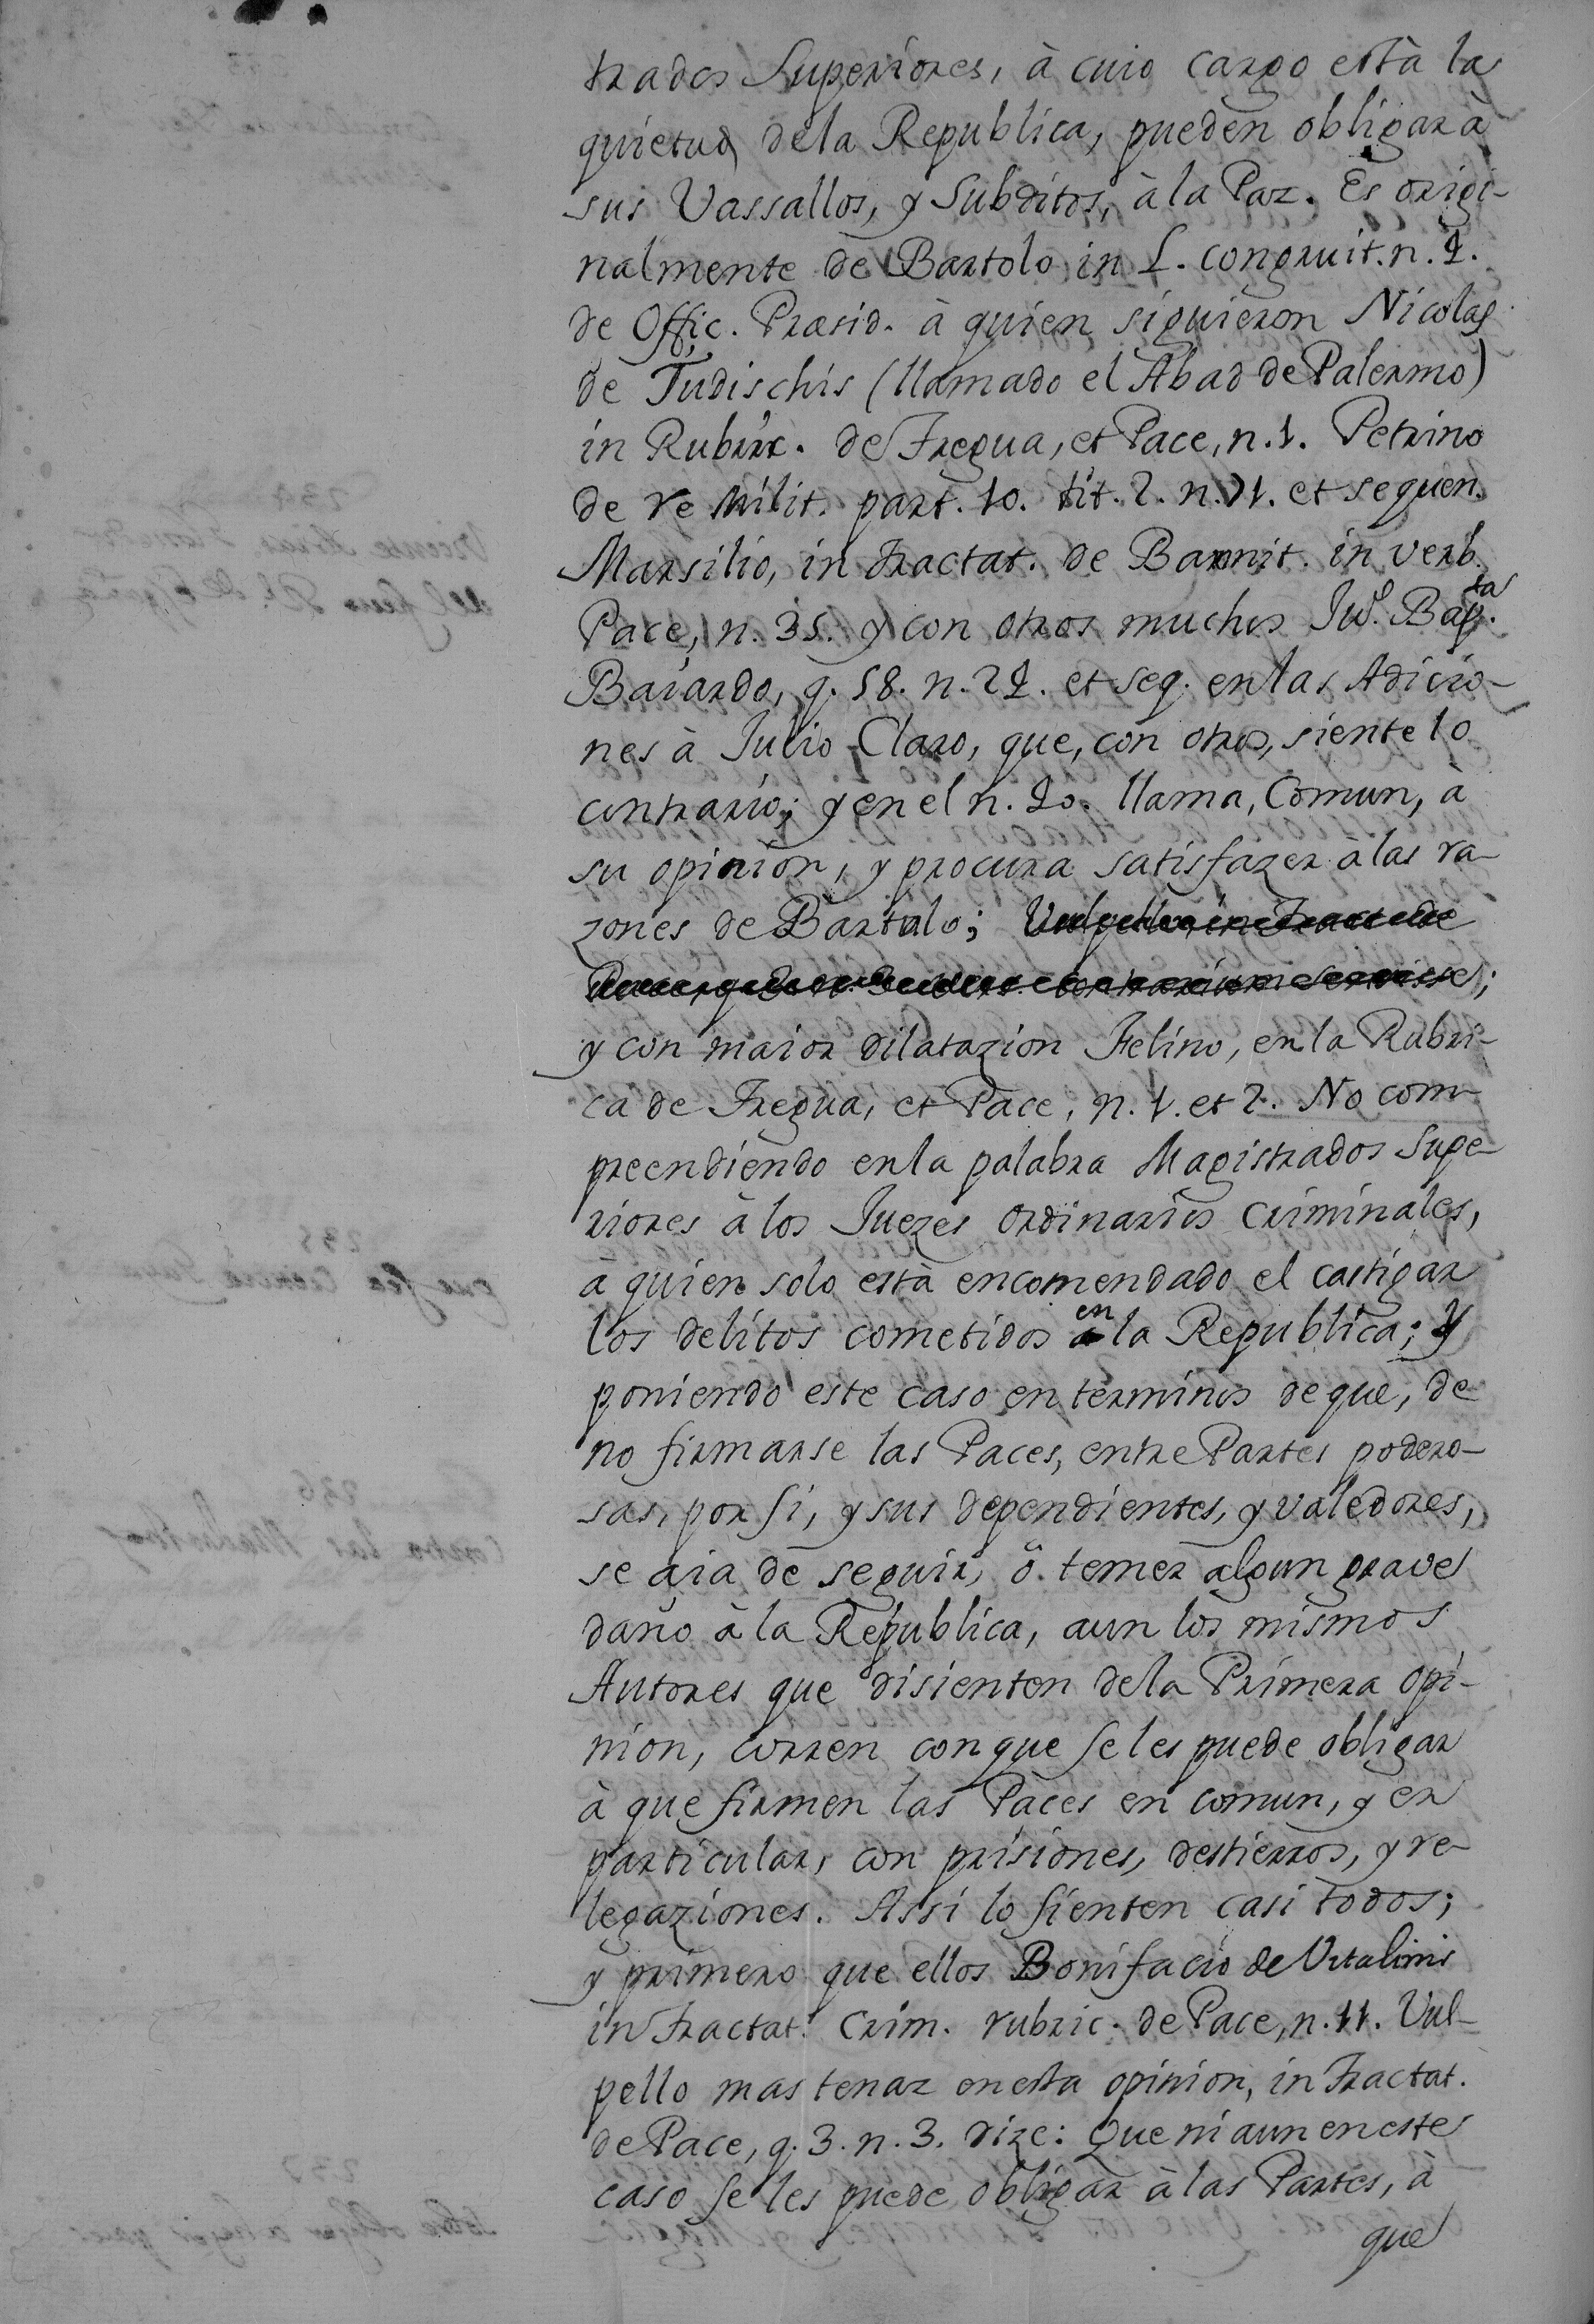 trados Superiores, à cuio cargo està la
quietud dela Republica, pueden obligar à
sus Vassallos, y Subditos, à la Paz. Es origi-
nalmente de Bartolo in L. congruit. n. 2.
de Offic. Præsid. à quien siguieron Nicolas
de Tudischis (llamado el Abad de Palermo)
in Rubric. de Tregua, et Pace, n. 1. Petrino
de re Milit. part. 10. tit. 2. n. 71. et sequen.
Marsilio, in tractat. de Bannit. in verb.
Pace, n. 35. y con otros muchos Ju.º Bap.ta
Baiardo, q. 58. n. 22. et seq. en las Adicio-
nes à Julio Claro, que, con otros, siente lo
contrario; y en el n. 20. llama, Comun, à
su opinion, y procura satisfazer à las ra-
zones de Bartulo;
y con maior dilatazion Felino, en la Rubri-
ca de Tregua, et Pace, n. 1. et 2. No com-
preendiendo en la palabra Magistrados Supe-
riores à los Juezes ordinarios criminales,
à quien solo està encomendado el castigar
los delitos cometidos en la Republica; y
poniendo este caso en terminos de que, de
no firmarse las Paces, entre Partes podero-
sas, por si, y sus dependientes, y valedores,
se aia de seguir, ô temer algun grave
daño à la Republica, aun los mismos
Autores que disienten dela Primera opi-
nion, corren con que se les puede obligar
à que firmen las Paces en comun, y en
particular, con prisiones, destierros, y re-
legaziones. Assi lo sienten casi todos;
y primero que ellos Bonifacio de Vitalinis
in tractat. Crim. rubric. de Pace, n. 11. Vul-
pello mas tenaz en esta opinion, in tractat.
de Pace, q. 3. n. 3. dize: Que ni aun en este
caso se les puede obligar à las Partes, à
que